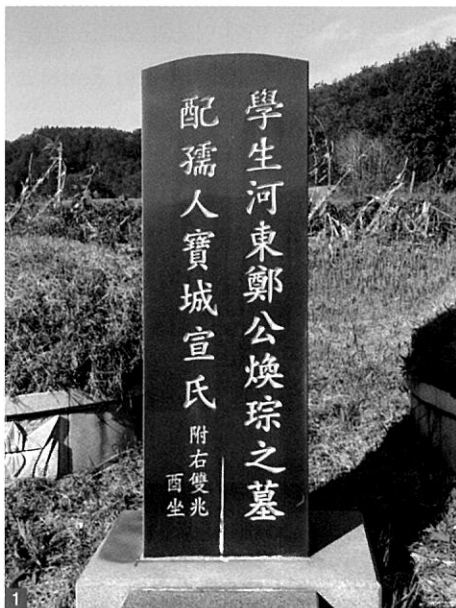 學生河東鄭公煥琮之墓
配孺人寶城宣氏
附右雙兆
酉坐
1